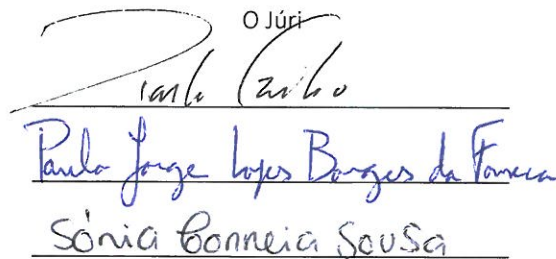 O Júri
Paulo Jorge Lopes Borges da Fonseca
Sónia Correia Sousa